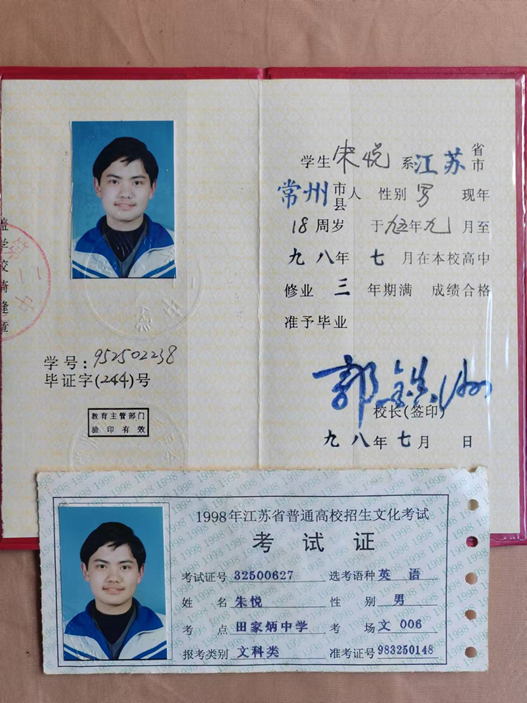 学生 朱悦 系 江苏 省市
常州 市县 人 性别 男 现年
18 周岁 于 九五年九月至
九八年 七 月在本校高中
修业 三 年期满 成绩合格
准予毕业
学号: 952502238
毕证字(244)号
教育主管部门
验印有效
校长(签印)
九八年七月 日
1998年江苏省普通高校招生文化考试
考试证
考试证号 32500627 选考语种 英 语
姓 名 朱悦 性 别 男
考 点 田家炳中学 考 场 文 006
报考类别 文科类 准考证号 983250148